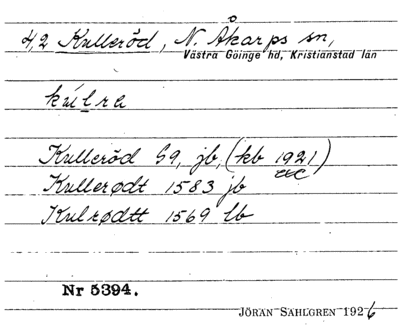 4,2 Kulleröd, N. Åkarps sn,
Västra Göinge hd, Kristianstad län
kúlra
Kulleröd 59, jb, (kb 1921)
etc
Kullerødt 1583 jb
Kulrødtt 1569 lb
Nr 5394.
JÖRAN SAHLGREN 1926